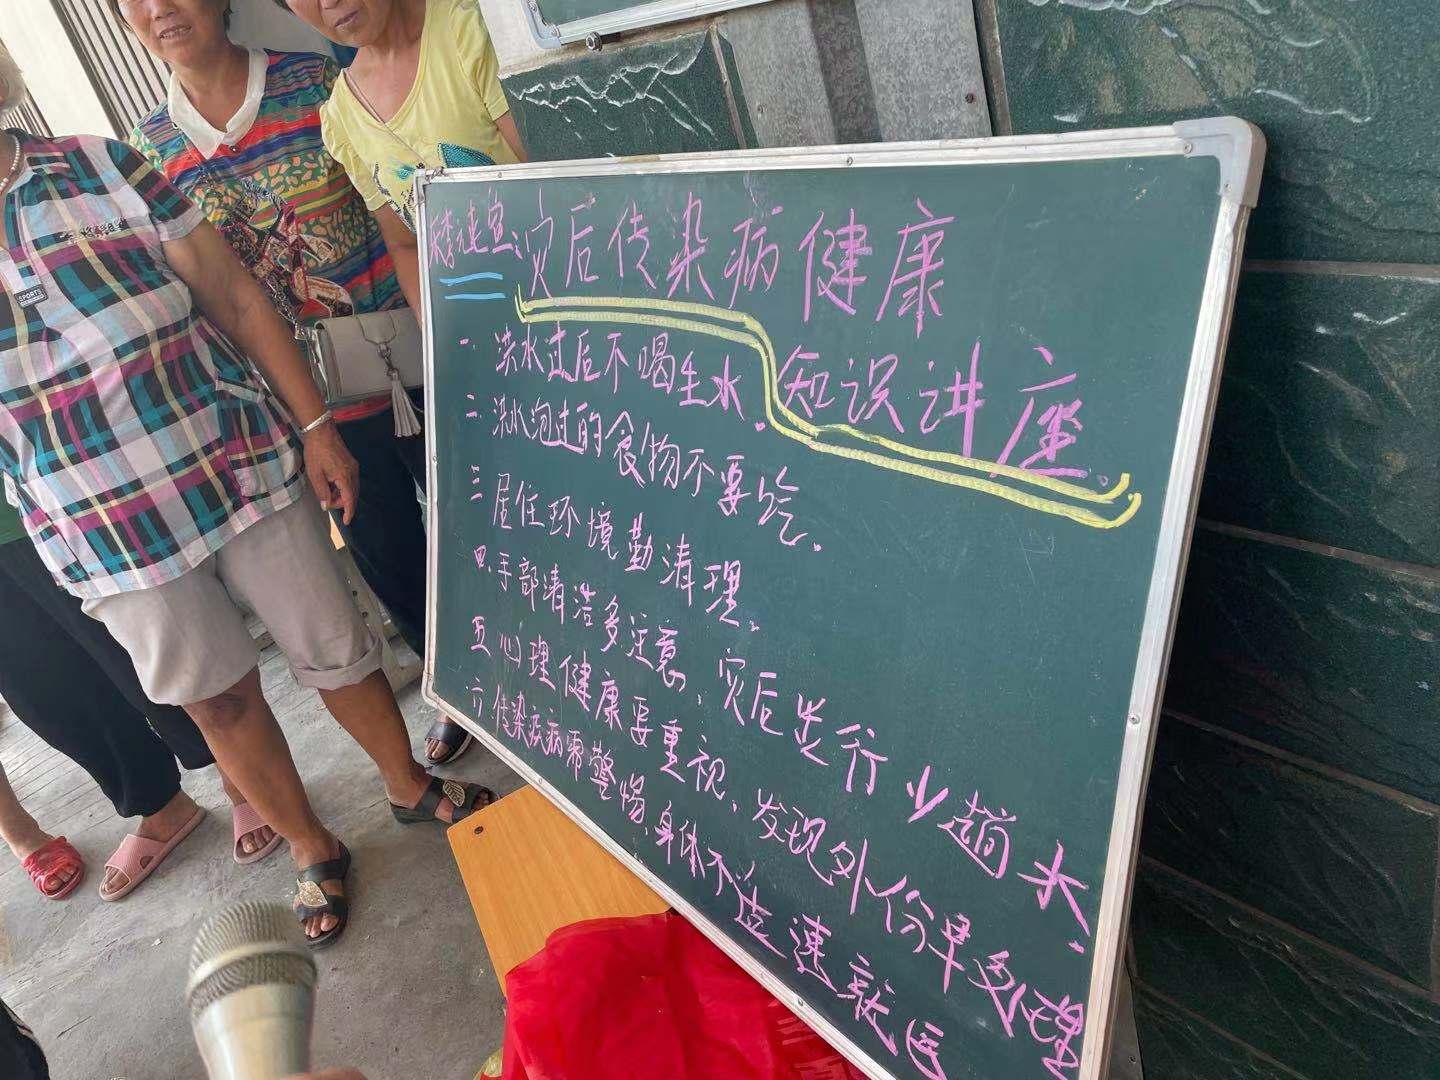 灾后传染病健康
知识讲座
一.洪水过后不喝生水.
二.洪水泡过的食物不要吃.
三 居住环境勤清理.
四、手部清洁多注意,灾后出行少趟水.
五 心理健康要重视、发现外伤早处理
六 传染疾病需警惕,身体不适速就医
SPORTS